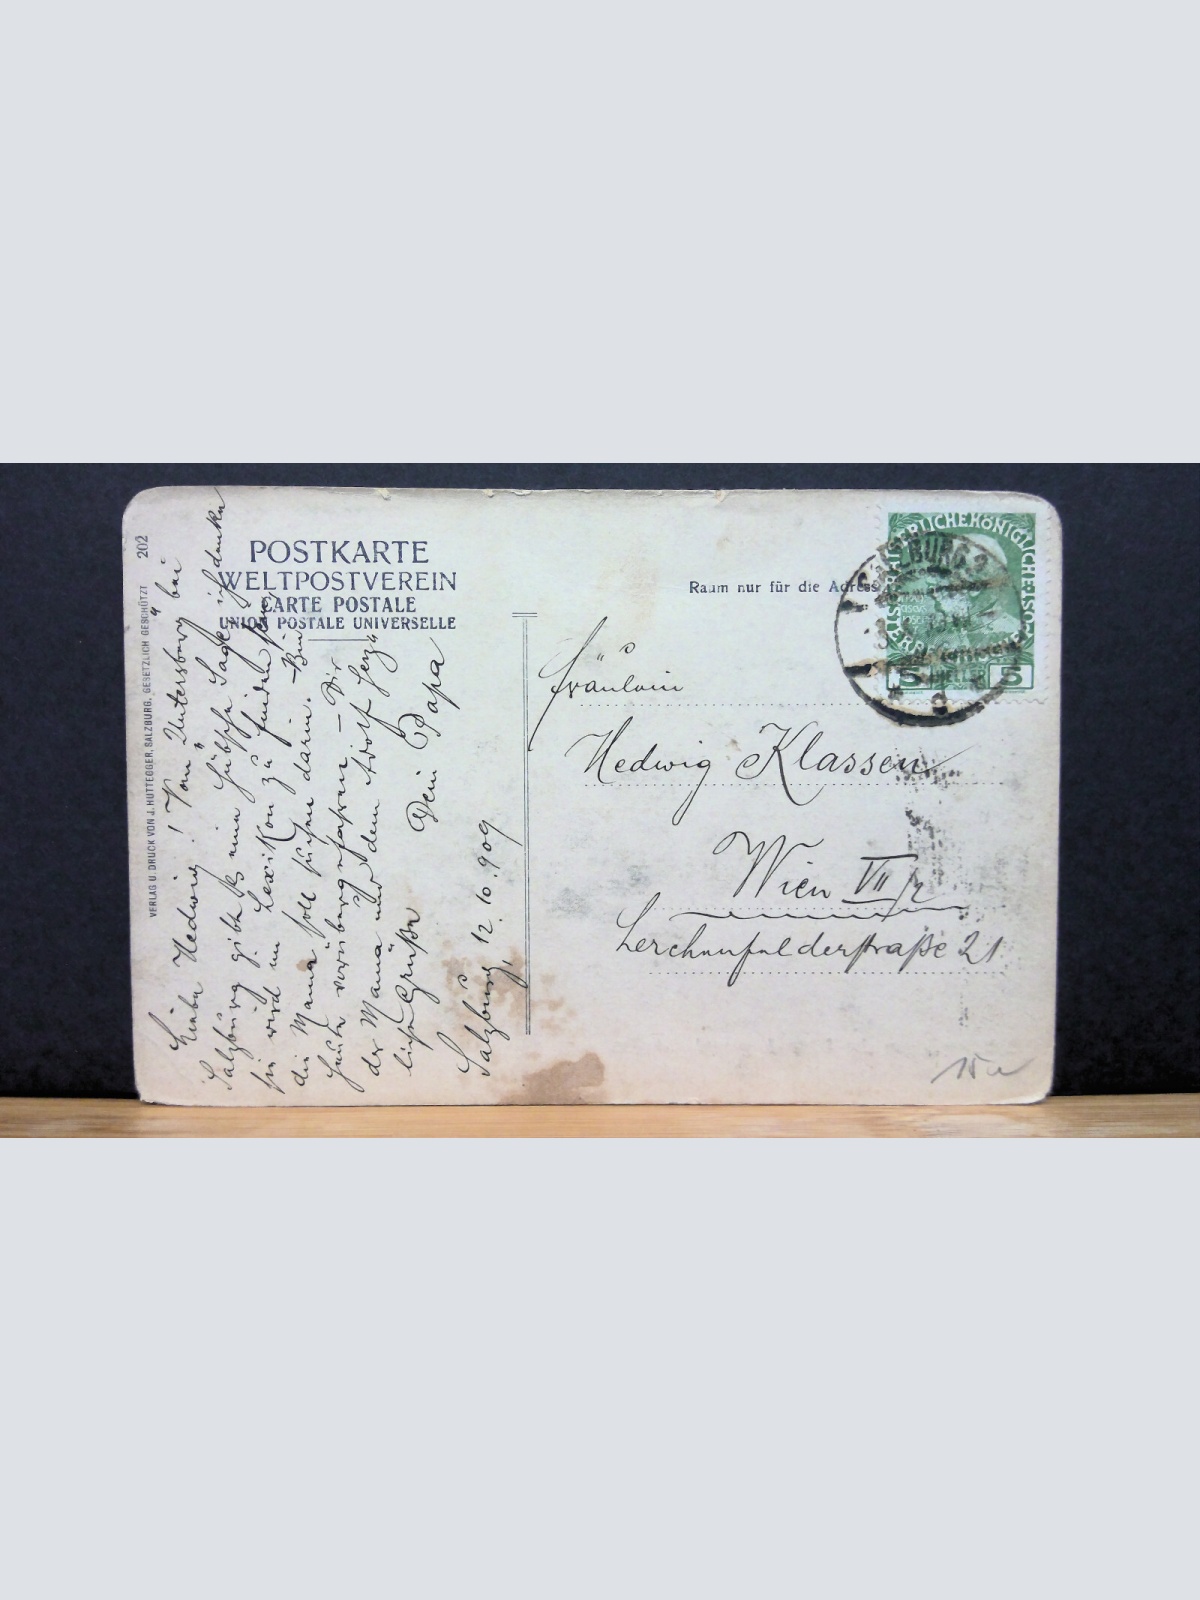 202
VERLAG U. DRUCK VON J. HUTTEGGER, SALZBURG, GESETZLICH GESCHÜTZT
POSTKARTE
WELTPOSTVEREIN
CARTE POSTALE
UNION POSTALE UNIVERSELLE
Liebe Hedwig! Vom Untersberg bei
Salzburg gibt es eine hübsche Sage, ich denke
sie wird im Lexikon zu finden sein,
die Mama soll suchen darin. - Bin
heute vorübergefahren. - Dir
der Mama und dem Adolf herz-
liche Grüße
Dein Papa
Salzburg, 12.10.909
Raum nur für die Adresse
ÖSTERREICH
5 HELLER 5
SALZBURG 2
Fräulein
Hedwig Klassen
Wien VII/2
Lerchenfelderstraße 21